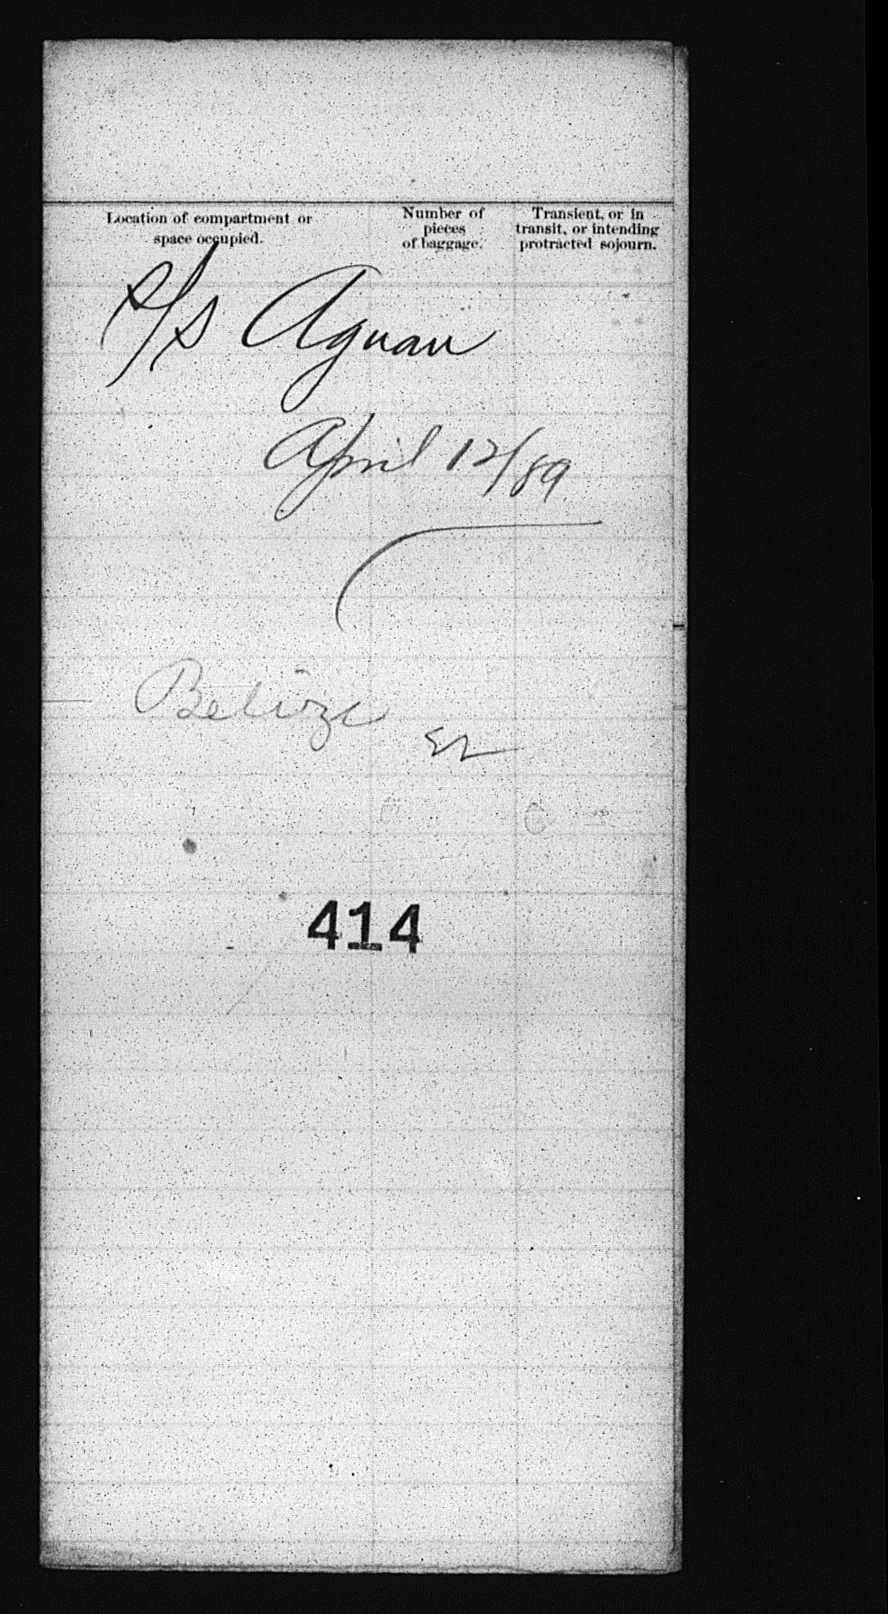 Location of compartment or space occupied.
Number of pieces of baggage.
Transient, or in transit, or intending protracted sojourn.
S/S Aguan
April 12/89
Belize
414